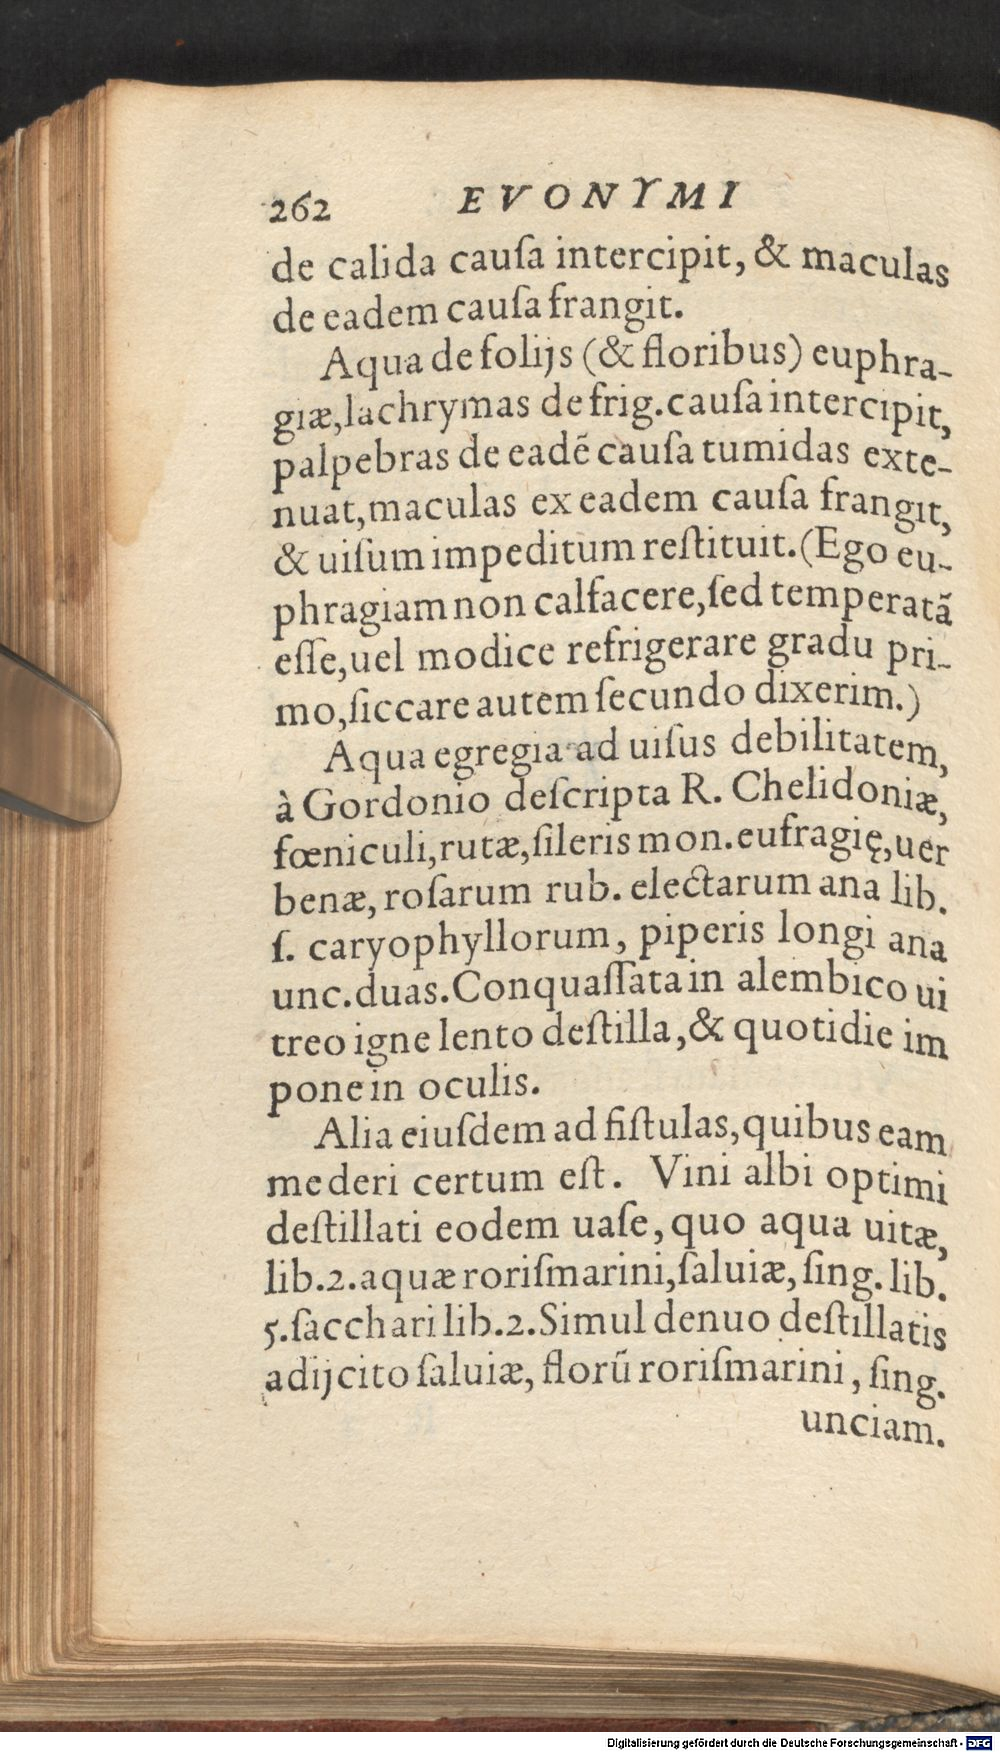 262 EVONYMI
de calida cauſa intercipit, & maculas
de eadem cauſa frangit.
Aqua de folijs (& floribus) euphra-
giæ, lachrymas de frig. cauſa intercipit,
palpebras de eadẽ cauſa tumidas exte-
nuat, maculas ex eadem cauſa frangit,
& uiſum impeditum reſtituit. (Ego eu-
phragiam non calfacere, ſed temperatã
eſſe, uel modice refrigerare gradu pri-
mo, ſiccare autem ſecundo dixerim.)
Aqua egregia ad uiſus debilitatem,
à Gordonio deſcripta R. Chelidoniæ,
fœniculi, rutæ, ſileris mon. eufragię, uer
benæ, roſarum rub. electarum ana lib.
ſ. caryophyllorum, piperis longi ana
unc. duas. Conquaſſata in alembico ui
treo igne lento deſtilla, & quotidie im
pone in oculis.
Alia eiuſdem ad fiſtulas, quibus eam
mederi certum eſt. Vini albi optimi
deſtillati eodem uaſe, quo aqua uitæ,
lib. 2. aquæ roriſmarini, ſaluiæ, ſing. lib.
5. ſacchari lib. 2. Simul denuo deſtillatis
adijcito ſaluiæ, florũ roriſmarini, ſing.
unciam.
Digitalisierung gefördert durch die Deutsche Forschungsgemeinschaft - DFG